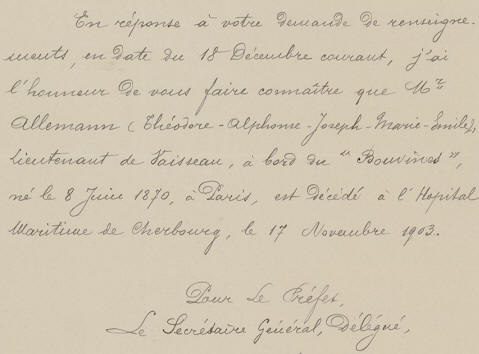 En réponse à votre demande de renseigne-
ments, en date du 18 Décembre courant, j'ai
l'honneur de vous faire connaître que Mr
Allemann (Théodore-Alphonse-Joseph-Marie-Emile),
Lieutenant de Vaisseau, à bord du "Bouvines",
né le 8 Juin 1870, à Paris, est décédé à l'Hopital
Maritime de Cherbourg, le 17 Novembre 1903.
Pour Le Préfet,
Le Secrétaire Général, Délégué,